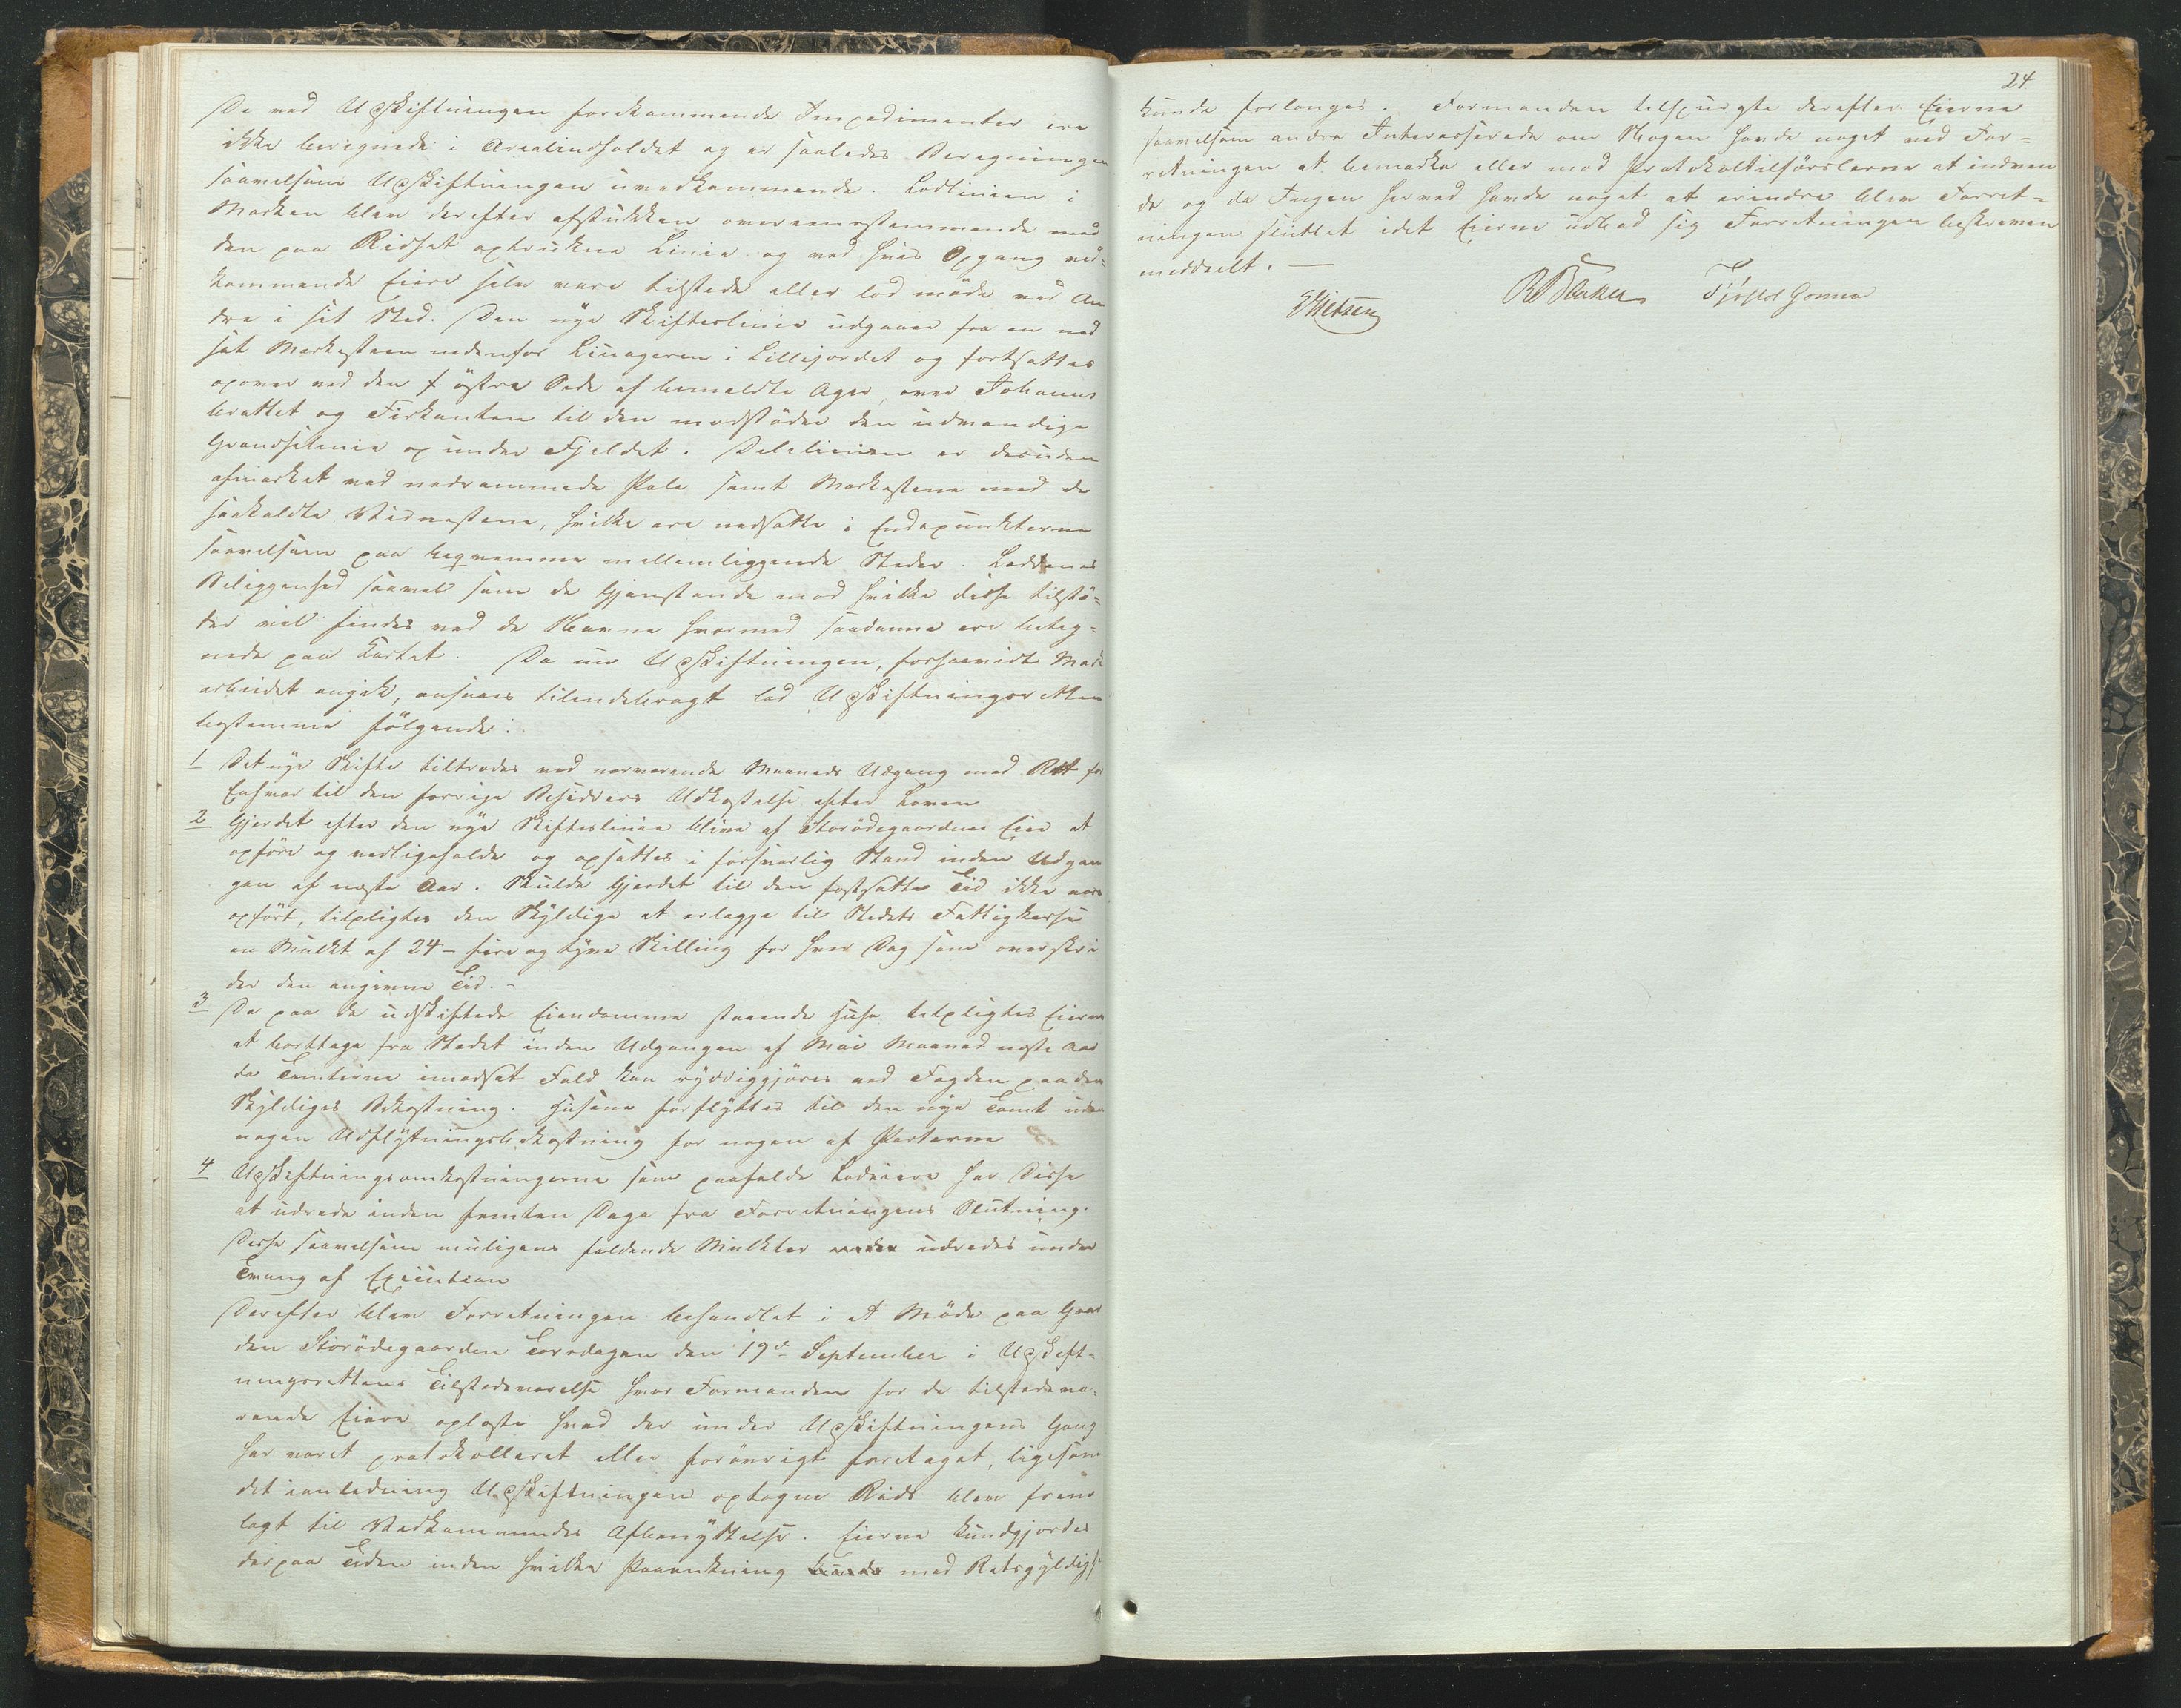 De ved Udskiftningen forekommende Impedimenter ere
ikke beregnede i Arealindholdet og er saaledes Beregningen
saavelsom Udskiftningen uvedkommende. Lodlinien i
Marken blev derefter afstukken overeensstemmende med
den paa Ridset optrukne Linie og ved hvis Opgang ved-
kommende Eiere selv vare tilstede eller lod møde ved An
dre i sit Sted. Den nye Skifteslinie udgaaer fra en ned
sat Markesteen nedenfor Linageren i Lillejordet og fortsættes
opover ved den østre Side af bemeldte Ager, over Johannes
brattet og Firkanten til den modstøder den udvendige
Grændselinie op under Fjeldet. Delelinien er desuden
afmærket ved nedrammede Pæle samt Markestene med de
saakaldte Vidnestene, hvilke ere nedsatte i Endepunkterne
saavelsom paa beqvemme mellemliggende Steder. Loddenes
Beliggenhed saavel som de Gjenstande mod hvilke disse tilstø-
der vil findes ved de Navne hvormed saadanne ere beteg-
nede paa Kartet. Da nu Udskiftningen, forsaavidt Mark
arbeidet angik, ansaaes tilendebragt lod Udskiftningsretten
bestemme følgende:
1 Det nye Skifte tiltrædes ved nærværende Maaneds Udgang med Ret for
Enhver til den forrige Besidders Udkastelse efter Loven
2 Gjerdet efter den nye Skifteslinie blive af Storødegaardens Eier at
opføre og vedligeholde og opsættes i forsvarlig Stand inden Udgan
gen af næste Aar. Skulde Gjerdet til den fastsatte Tid ikke være
opført, tilpligtes den Skyldige at erlægge til Stedets Fattigkasse
en Mulkt af 24 - fire og tyve Skilling for hver Dag som overskri
der den angivne Tid. -
3 De paa de udskiftede Eiendomme staaende Huse tilpligtes Eierne
at borttage fra Stedet inden Udgangen af Mai Maaned næste Aar
da Tomterne i modsat Fald kan ryddiggjøres ved Fogden paa den
Skyldiges Bekostning. Husene forflyttes til den nye Tomt uden
nogen Udflytningsbekostning for nogen af Parterne
4 Udskiftningsomkostningerne som paafalde Lodeiere har Disse
at udrede inden femten Dage fra Forretningens Slutning.
Disse saavelsom muligens faldende Mulkter udredes under
Tvang af Execution
Derefter blev Forretningen behandlet i et Møde paa Gaar
den Storødegaarden Torsdagen den 19de September i Udskift-
ningsrettens Tilstedeværelse hvor Formanden for de tilstedevæ-
rende Eiere oplæste hvad der under Udskiftningens Gang
har været protokolleret eller forøvrigt foretaget, ligesom
det i anledning Udskiftningen optagne Rids blev frem
lagt til Vedkommendes Afbenyttelse. Eierne kundgjordes
derpaa Tiden inden hvilke Paaankning kunde med Retsgyldighed
24
kunde forlanges. Formanden tilspurgte derefter Eierne
saavelsom andre Interesserede om Nogen havde noget ved For-
retningen at bemærke eller mod Protokoltilførslerne at indven
de og da Ingen herved havde noget at erindre blev Forret-
ningen sluttet idet Eierne udbad sig Forretningen beskreven
meddeelt. -